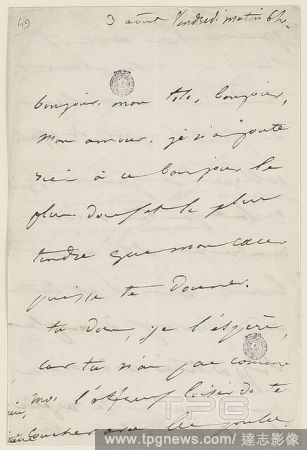 49
3 août Vendredi matin 6h.
Bonjour, mon toto, bonjour,
mon amour, je n'ajoute
rien à ce bonjour le
plus doux et le plus
tendre que mon cœur
puisse te donner.
tu dors, je l'espère,
car tu n'as pas comme
moi l'affreux loisir de te
coucher avec les poules
TPG
www.tpgnews.com / 達志影像